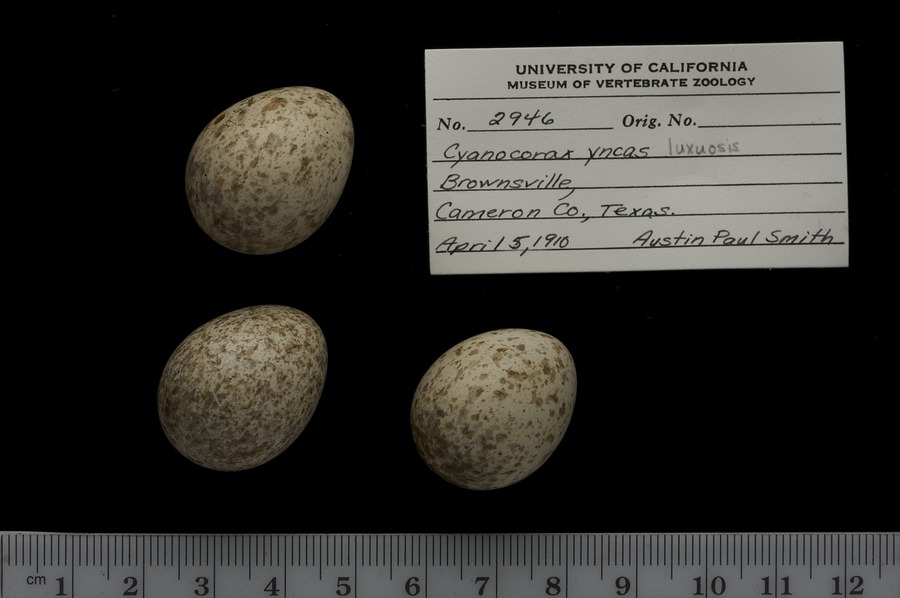 UNIVERSITY OF CALIFORNIA
MUSEUM OF VERTEBRATE ZOOLOGY
No. 2946 Orig. No.
Cyanocorax yncas luxuosis
Brownsville,
Cameron Co., Texas.
April 5, 1910 Austin Paul Smith
cm 1 2 3 4 5 6 7 8 9 10 11 12